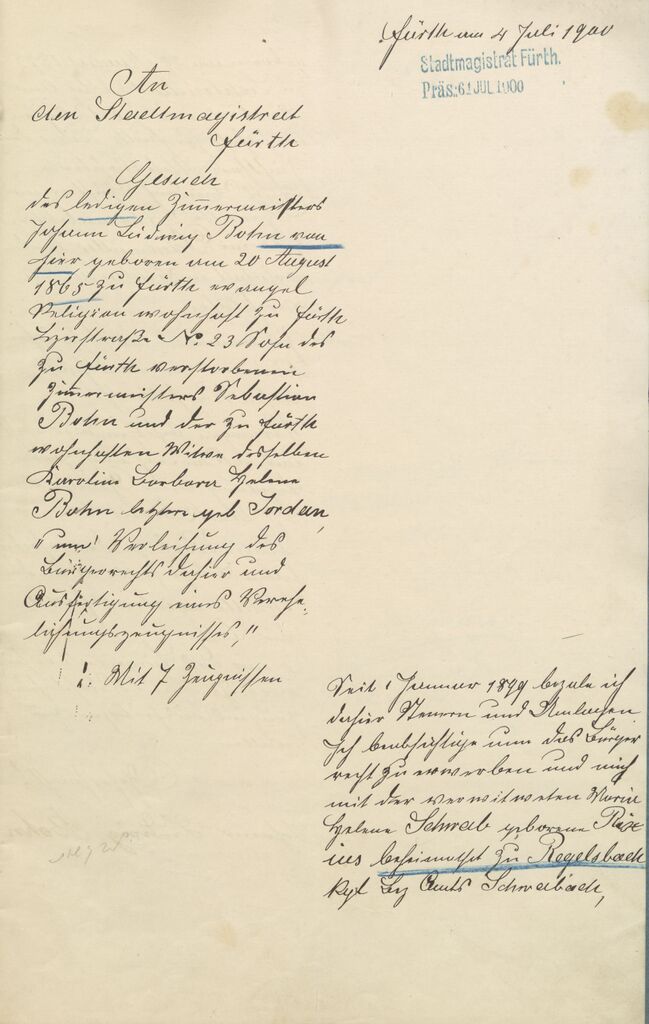 Fürth am 4 Juli 1900
Stadtmagistrat Fürth.
Präs: 6 JUL 1900
An
den Stadtmagistrat
Fürth
Gesuch
des ledigen Zimmermeisters
Johann Ludwig Bohn von
hier geboren am 20 August
1865 zu Fürth evangel
Religion wohnhaft zu Fürth
No. 23 Sohn des
zu Fürth verstorbenen
Zimmermeisters Sebastian
Bohn und der zu Fürth
wohnhaften Witwe desselben
Karolina Barbara Helene
Bohn letztere geb Jordan,
"um" Verleihung des
Bürgerrechts dahier und
Ausfertigung eines Verehe-
lichungszeugnisses,"
Mit 7 Zeugnissen
Seit 1 Januar 1899 bezale ich
dahier Steuern und Umlagen
Ich beabsichtige nun das Bürger
recht zu erwerben und mich
mit der verwitweten Maria
Helene Schwab geborene
beheimathet zu Regelsbach
kgl Bez Amts Schwabach,